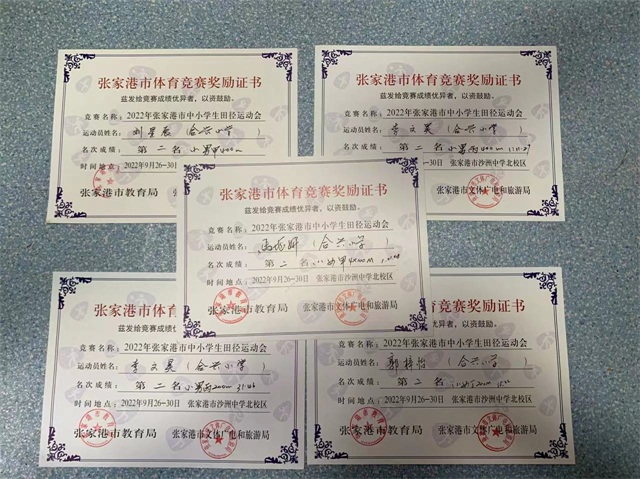 张家港市体育竞赛奖励证书
兹发给竞赛成绩优异者，以资鼓励。
竞赛名称：2022年张家港市中小学生田径运动会
运动员姓名：（合兴小学）
名次成绩：第二名
时间地点：2022年9月26—30日
张家港市教育局
张家港市体育竞赛奖励证书
兹发给竞赛成绩优异者，以资鼓励。
竞赛名称：2022年张家港市中小学生田径运动会
运动员姓名：李文昊（合兴小学）
名次成绩：第二名 小男丙400m
—30日 张家港市沙洲中学北校区
张家港市文体广电和旅游局
张家港市体育竞赛奖励证书
兹发给竞赛成绩优异者，以资鼓励。
竞赛名称：2022年张家港市中小学生田径运动会
运动员姓名：（合兴小学）
名次成绩：第二名 小女甲400m
时间地点：2022年9月26—30日 张家港市沙洲中学北校区
张家港市教育局 张家港市文体广电和旅游局
张家港市
兹发给竞赛成绩优
竞赛名称：2022年张家港市中小学生田径运动会
运动员姓名：李文昊（合兴小学）
名次成绩：第二名 小男丙200m
时间地点：2022年9月26—30日 张家港市沙洲中学校区
张家港市教育局 张家港市文体广电和旅游局
育竞赛奖励证书
优异者，以资鼓励。
竞赛名称：2022年张家港市中小学生田径运动会
运动员姓名：郭梓怡（合兴小学）
名次成绩：第二名
时间地点：2022年9月26—30日 张家港市沙洲中学北校区
张家港市教育局 张家港市文体广电和旅游局